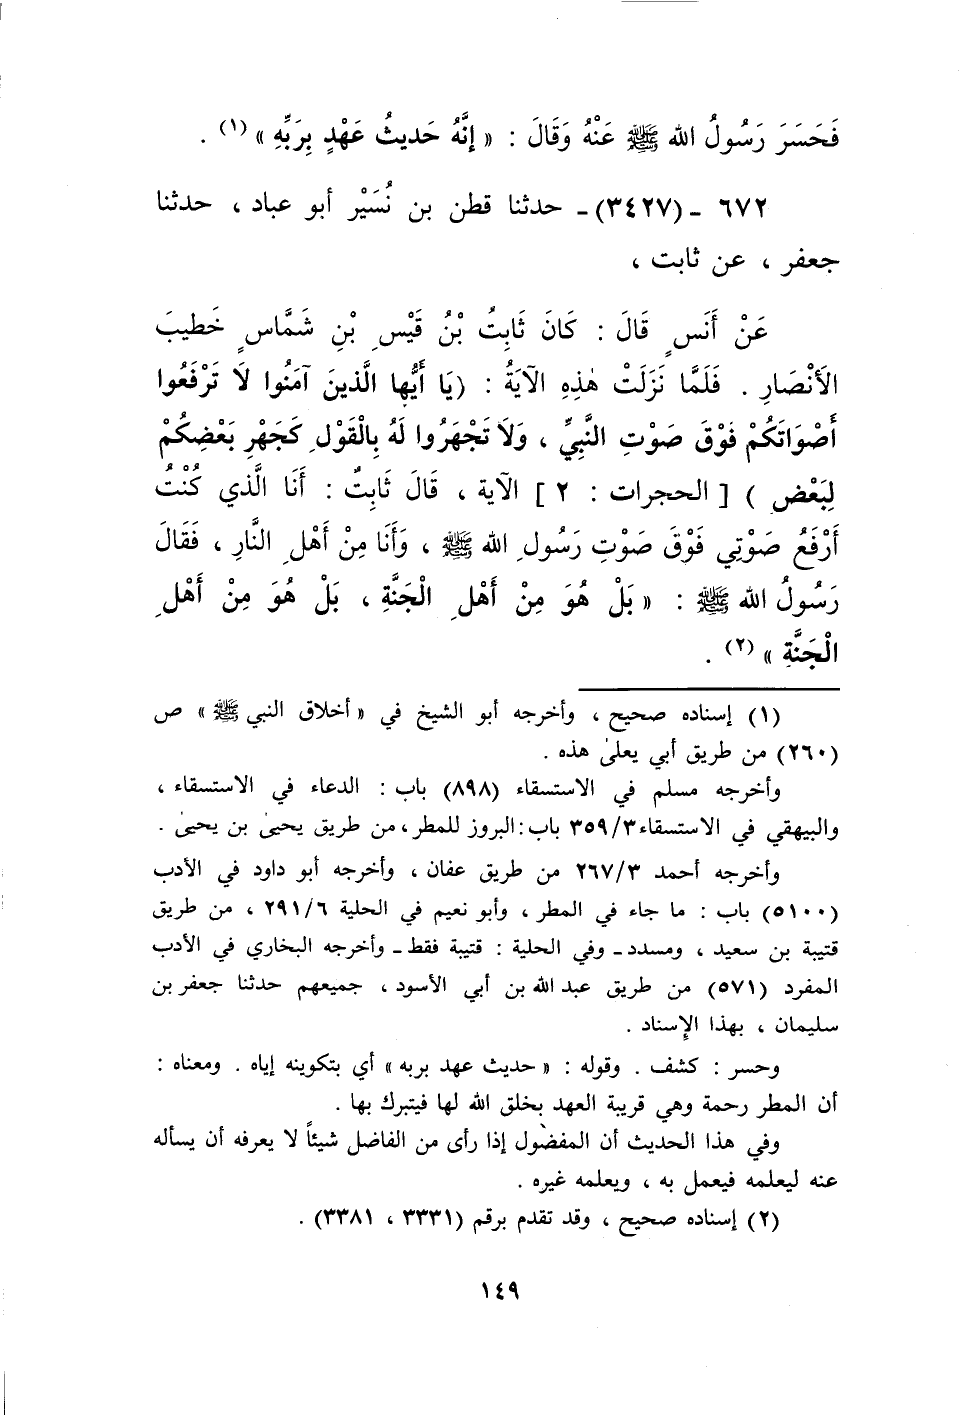 فَحَسَرَ رَسُولُ الله ﷺ عَنْهُ وَقَالَ : « إِنَّهُ حَدِيثُ عَهْدٍ بِرَبِّهِ » (١) .
٦٧٢ ـ (٣٤٢٧) ـ حدثنا قطن بن نُسَيْر أبو عباد ، حدثنا
جعفر ، عن ثابت ،
عَنْ أَنَسٍ قَالَ : كَانَ ثَابِتُ بْنُ قَيْسِ بْنِ شَمَّاسٍ خَطِيبَ
الأَنْصَارِ . فَلَمَّا نَزَلَتْ هٰذِهِ الآيَةُ : (يَا أَيُّها الَّذينَ آمَنُوا لَا تَرْفَعُوا
أَصْوَاتَكُمْ فَوْقَ صَوْتِ النَّبِيِّ ، وَلَا تَجْهَرُوا لَهُ بِالْقَوْلِ كَجَهْرِ بَعْضِكُمْ
لِبَعْضٍ ) [ الحجرات : ٢ ] الآية ، قَالَ ثَابِتٌ : أَنَا الَّذي كُنْتُ
أَرْفَعُ صَوْتِي فَوْقَ صَوْتِ رَسُولِ الله ﷺ ، وَأَنَا مِنْ أَهْلِ النَّارِ ، فَقَالَ
رَسُولُ الله ﷺ : « بَلْ هُوَ مِنْ أَهْلِ الْجَنَّةِ ، بَلْ هُوَ مِنْ أَهْلِ
الْجَنَّةِ » (٢) .
(١) إسناده صحيح ، وأخرجه أبو الشيخ في « أخلاق النبي ﷺ » ص
(٢٦٠) من طريق أبي يعلىٰ هذه .
وأخرجه مسلم في الاستسقاء (٨٩٨) باب : الدعاء في الاستسقاء ،
والبيهقي في الاستسقاء ٣/٣٥٩ باب : البروز للمطر ، من طريق يحيىٰ بن يحيىٰ .
وأخرجه أحمد ٣/٢٦٧ من طريق عفان ، وأخرجه أبو داود في الأدب
(٥١٠٠) باب : ما جاء في المطر ، وأبو نعيم في الحلية ٦/٢٩١ ، من طريق
قتيبة بن سعيد ، ومسدد ـ وفي الحلية : قتيبة فقط ـ وأخرجه البخاري في الأدب
المفرد (٥٧١) من طريق عبد الله بن أبي الأسود ، جميعهم حدثنا جعفر بن
سليمان ، بهذا الإِسناد .
وحسر : كشف . وقوله : « حديث عهد بربه » أي بتكوينه إياه . ومعناه :
أن المطر رحمة وهي قريبة العهد بخلق الله لها فيتبرك بها .
وفي هذا الحديث أن المفضول إذا رأى من الفاضل شيئاً لا يعرفه أن يسأله
عنه ليعلمه فيعمل به ، ويعلمه غيره .
(٢) إسناده صحيح ، وقد تقدم برقم (٣٣٣١ ، ٣٣٨١) .
١٤٩